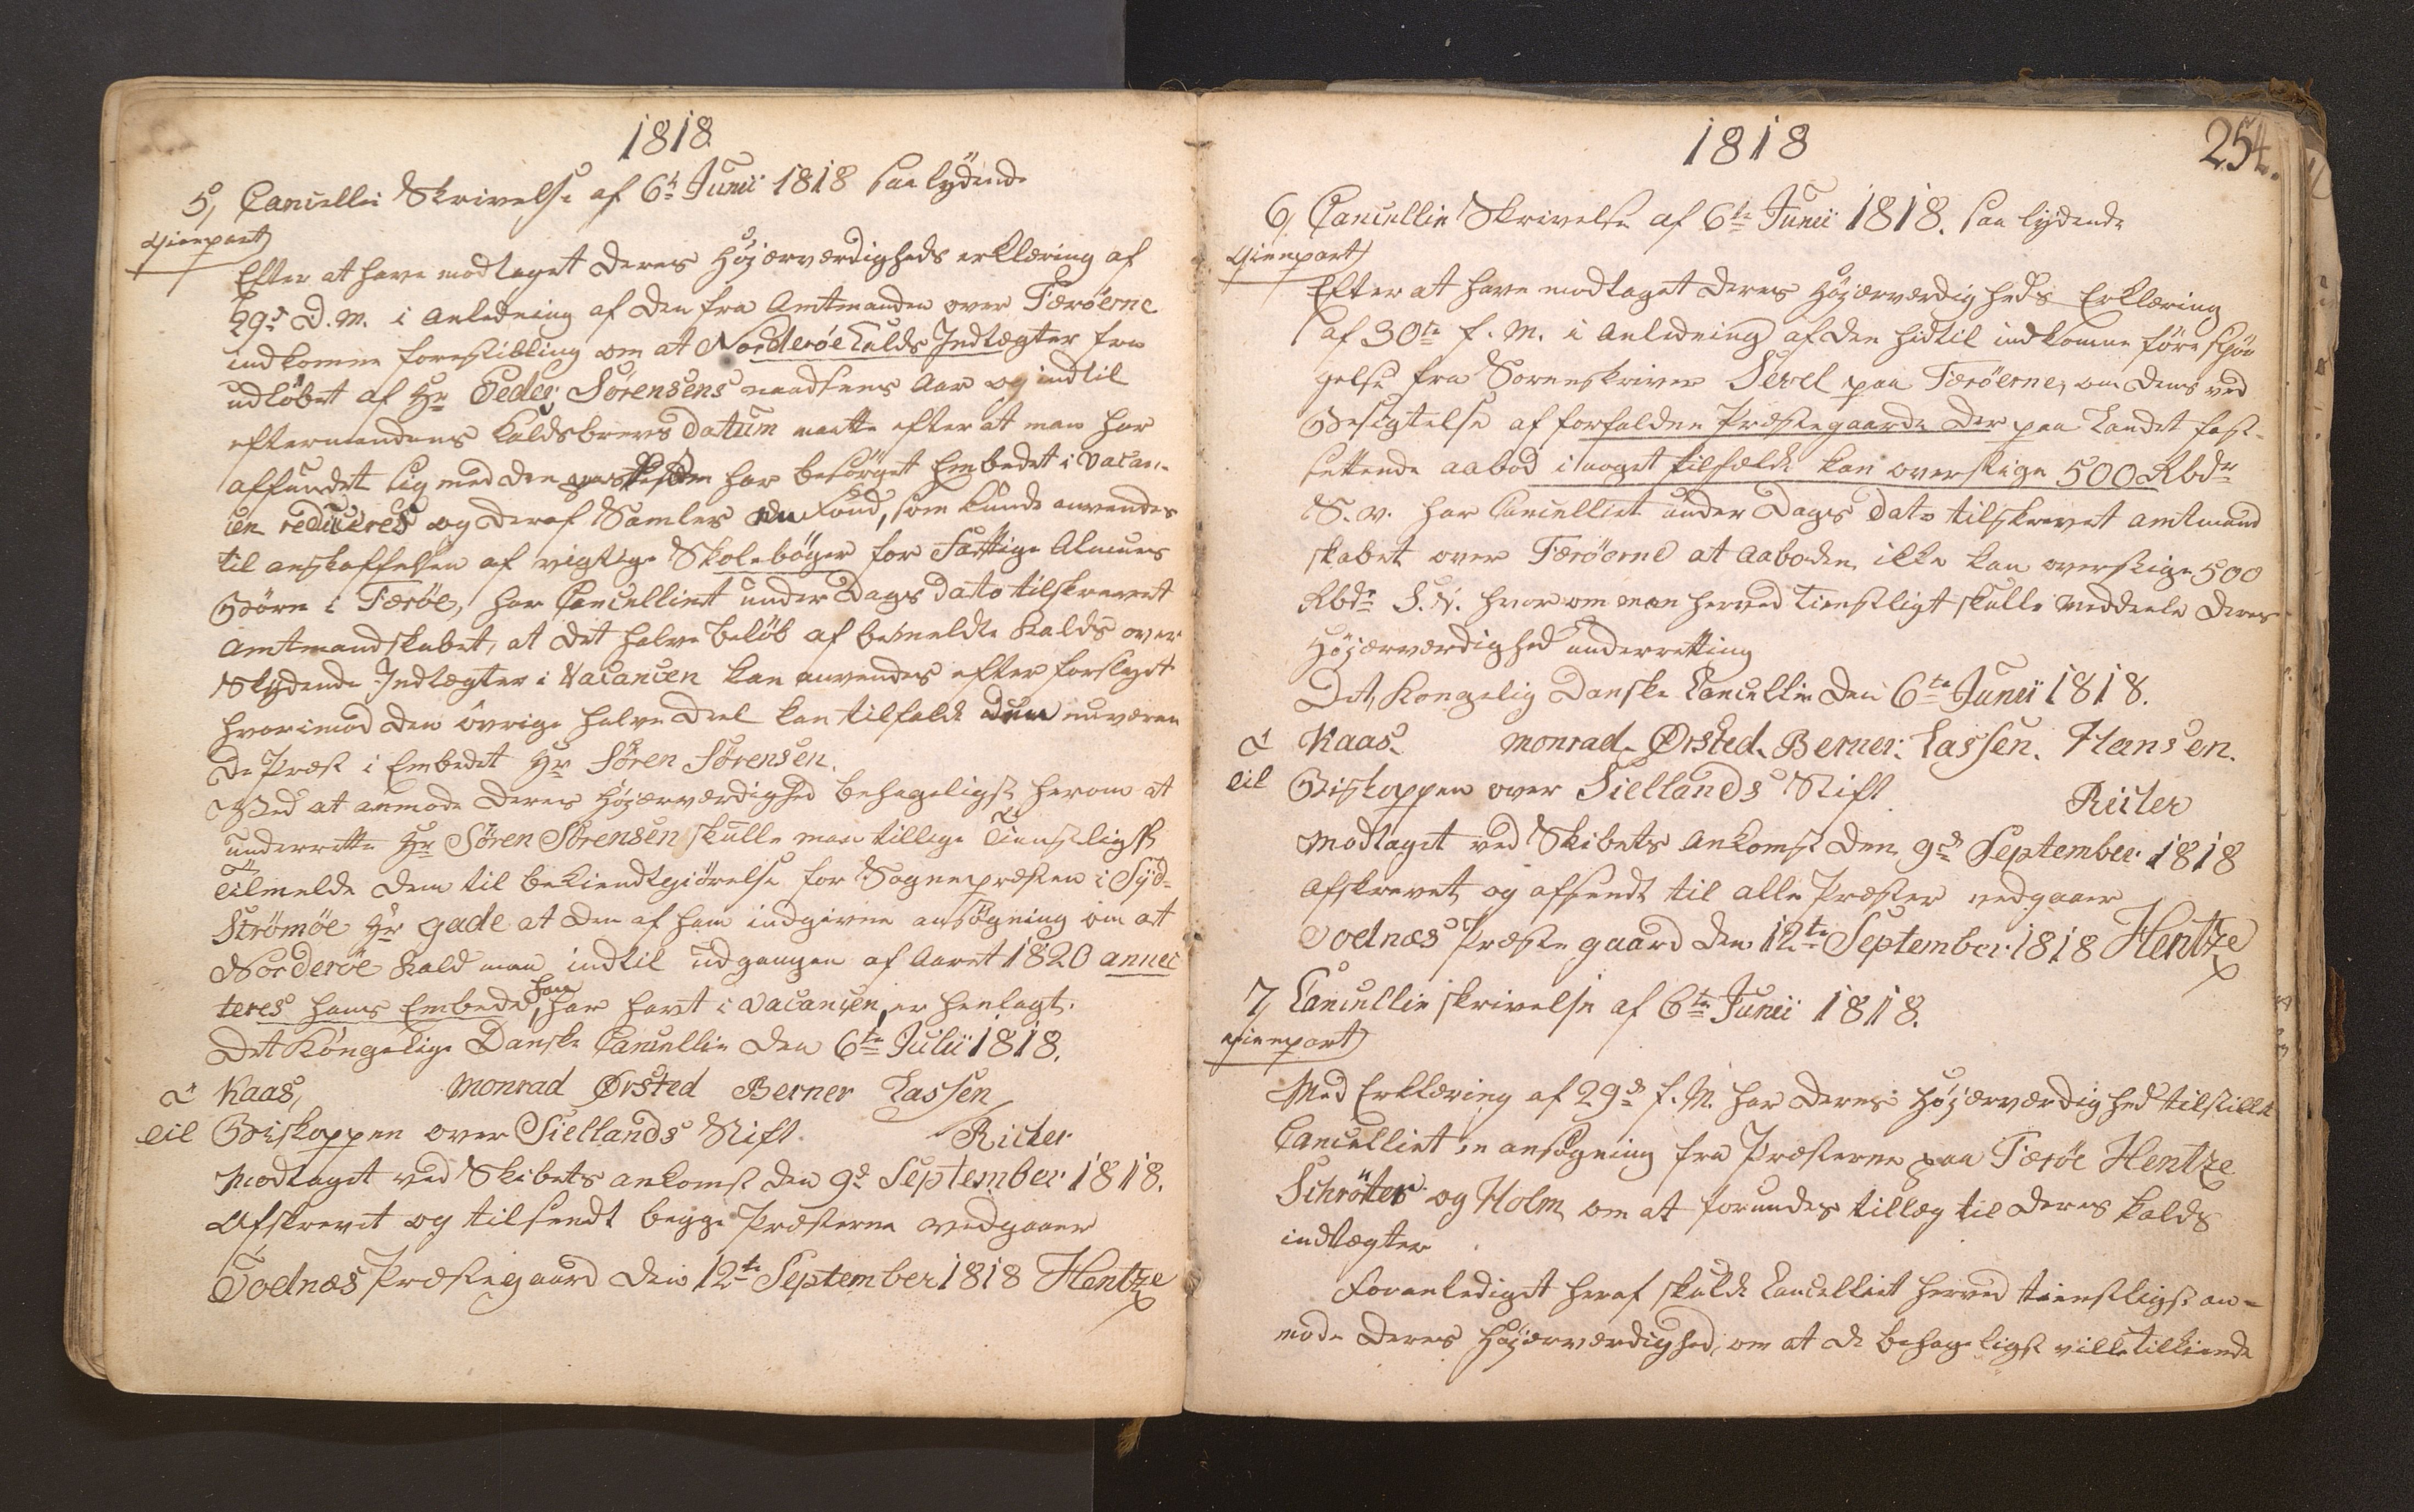 1818.
5, Cancellie Skrivelse af 6t Junii 1818 saa lydende
Gienpart
Efter at have modtaget Deres Höjærværdigheds erklæring af
29de d. M. i Anledning af den fra Amtmanden over Færöerne
indkomne forestilling om at Norderöe Kalds Indtægter fra
udlöbet af Hr Peder Sörensens naadsens Aar og indtil
eftermandens Kaldsbrevs datum maatte efter at man har
affundet sig med den som har besörget Embedet i Vacan-
cen reduceres og deraf Samles en Fond, som kunde anvendes
til anskaffelsen af vigtige Skolebøger for Fattige Almues
Börn i Færöe, har Cancelliet under Dags Dato tilskrevet
Amtmandskabet, at det halve belöb af bemeldte Kalds over
Skydende Indtægter i Vacancen kan anvendes efter forslaget
hvorimod den övrige halve Deel kan tilfalde den nuværen
de Præst i Embedet Hr Sören Sörensen.
Ved at anmode Deres Höjærværdighed behageligst herom at
underrette Hr Sören Sörensen skulle man tillige Tienstligst
Tilmelde Dem til bekiendtgiörelse for Sognepræsten i Syd-
Strömöe Hr Gade at den af ham indgivne ansögning om at
Norderöe Kald maa indtil udgangen af Aaret 1820 annec
teres hans Embede, han har havt i Vacancen, er henlagt.
Det Kongelige Danske Cancellie den 6te Julii 1818.
Kaas, Monrad Ørsted Berner Lassen
til Biskoppen over Siellands Stift. Ricter
Modtaget ved Skibets ankomst den 9d September 1818.
Afskrevet og tilsendt begge Præsterne vedgaaer
Todnæs Præstegaard den 12te September 1818 Hentze
1818
254.
6, Cancellie Skrivelse af 6te Junii 1818. saa lydende
Gienpart
Efter at have modtaget Deres Höjærværdigheds Erklæring
af 30te f. M. i Anledning af den hidtil indkomne
gelse fra Sorenskriver paa Færöerne, om dens ved
Besigtelse af forfaldne Præstegaarde der paa Landet fast-
settende aabod i noget tilfælde kan overstige 500 Rbdr
S. v. har Cancelliet under Dags Dato tilskrevet Amtmand
skabet over Færöerne at Aaboden ikke kan overstige 500
Rbdr S. V. hvorom man herved tienstligst skulle meddeele Deres
Höjærværdighed underretting
Det Kongelig Danske Cancellie den 6te Junii 1818.
Kaas. Monrad. Ørsted. Berner. Lassen. Hansen.
til Biskoppen over Siellands Stift Ricter
Modtaget ved Skibets Ankomst den 9de September 1818
Afskrevet og afsendt til alle Præster vedgaaer
Todnæs Præstegaard den 12te September 1818 Hentze
7, Cancellie skrivelse af 6te Junii 1818.
Gienpart
Med Erklæring af 29de f. M. har Deres Höjærværdighed tilstillet
Cancelliet en ansögning fra Præsterne paa Færöe Hentze
Schröter og Holm om at forundes tillæg til deres Kalds
indtægter
Foranlediget heraf skulde Cancelliet herved tienstligst an-
mode Deres Höjærværdighed, om at De behageligst ville tilkiende